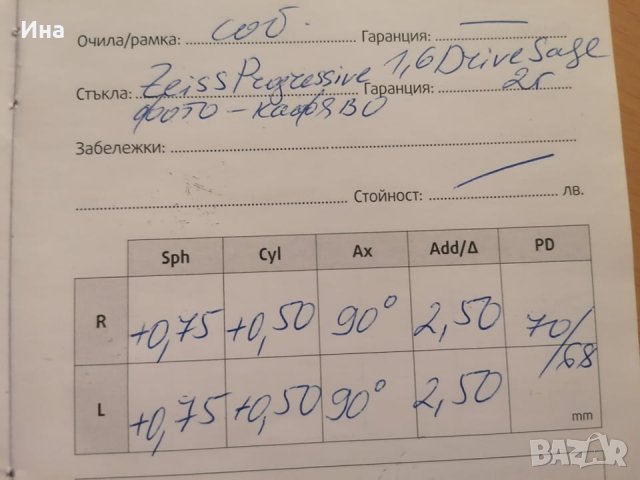 Ина
Очила/рамка: соб. Гаранция: —
Стъкла: Zeiss Progressive 1,6 DriveSafe Гаранция: 2г
фото-кафяво
Забележки:
Стойност: — лв.
Sph Cyl Ax Add/Δ PD
R +0,75 +0,50 90° 2,50 70/68
L +0,75 +0,50 90° 2,50 mm
BAZAR